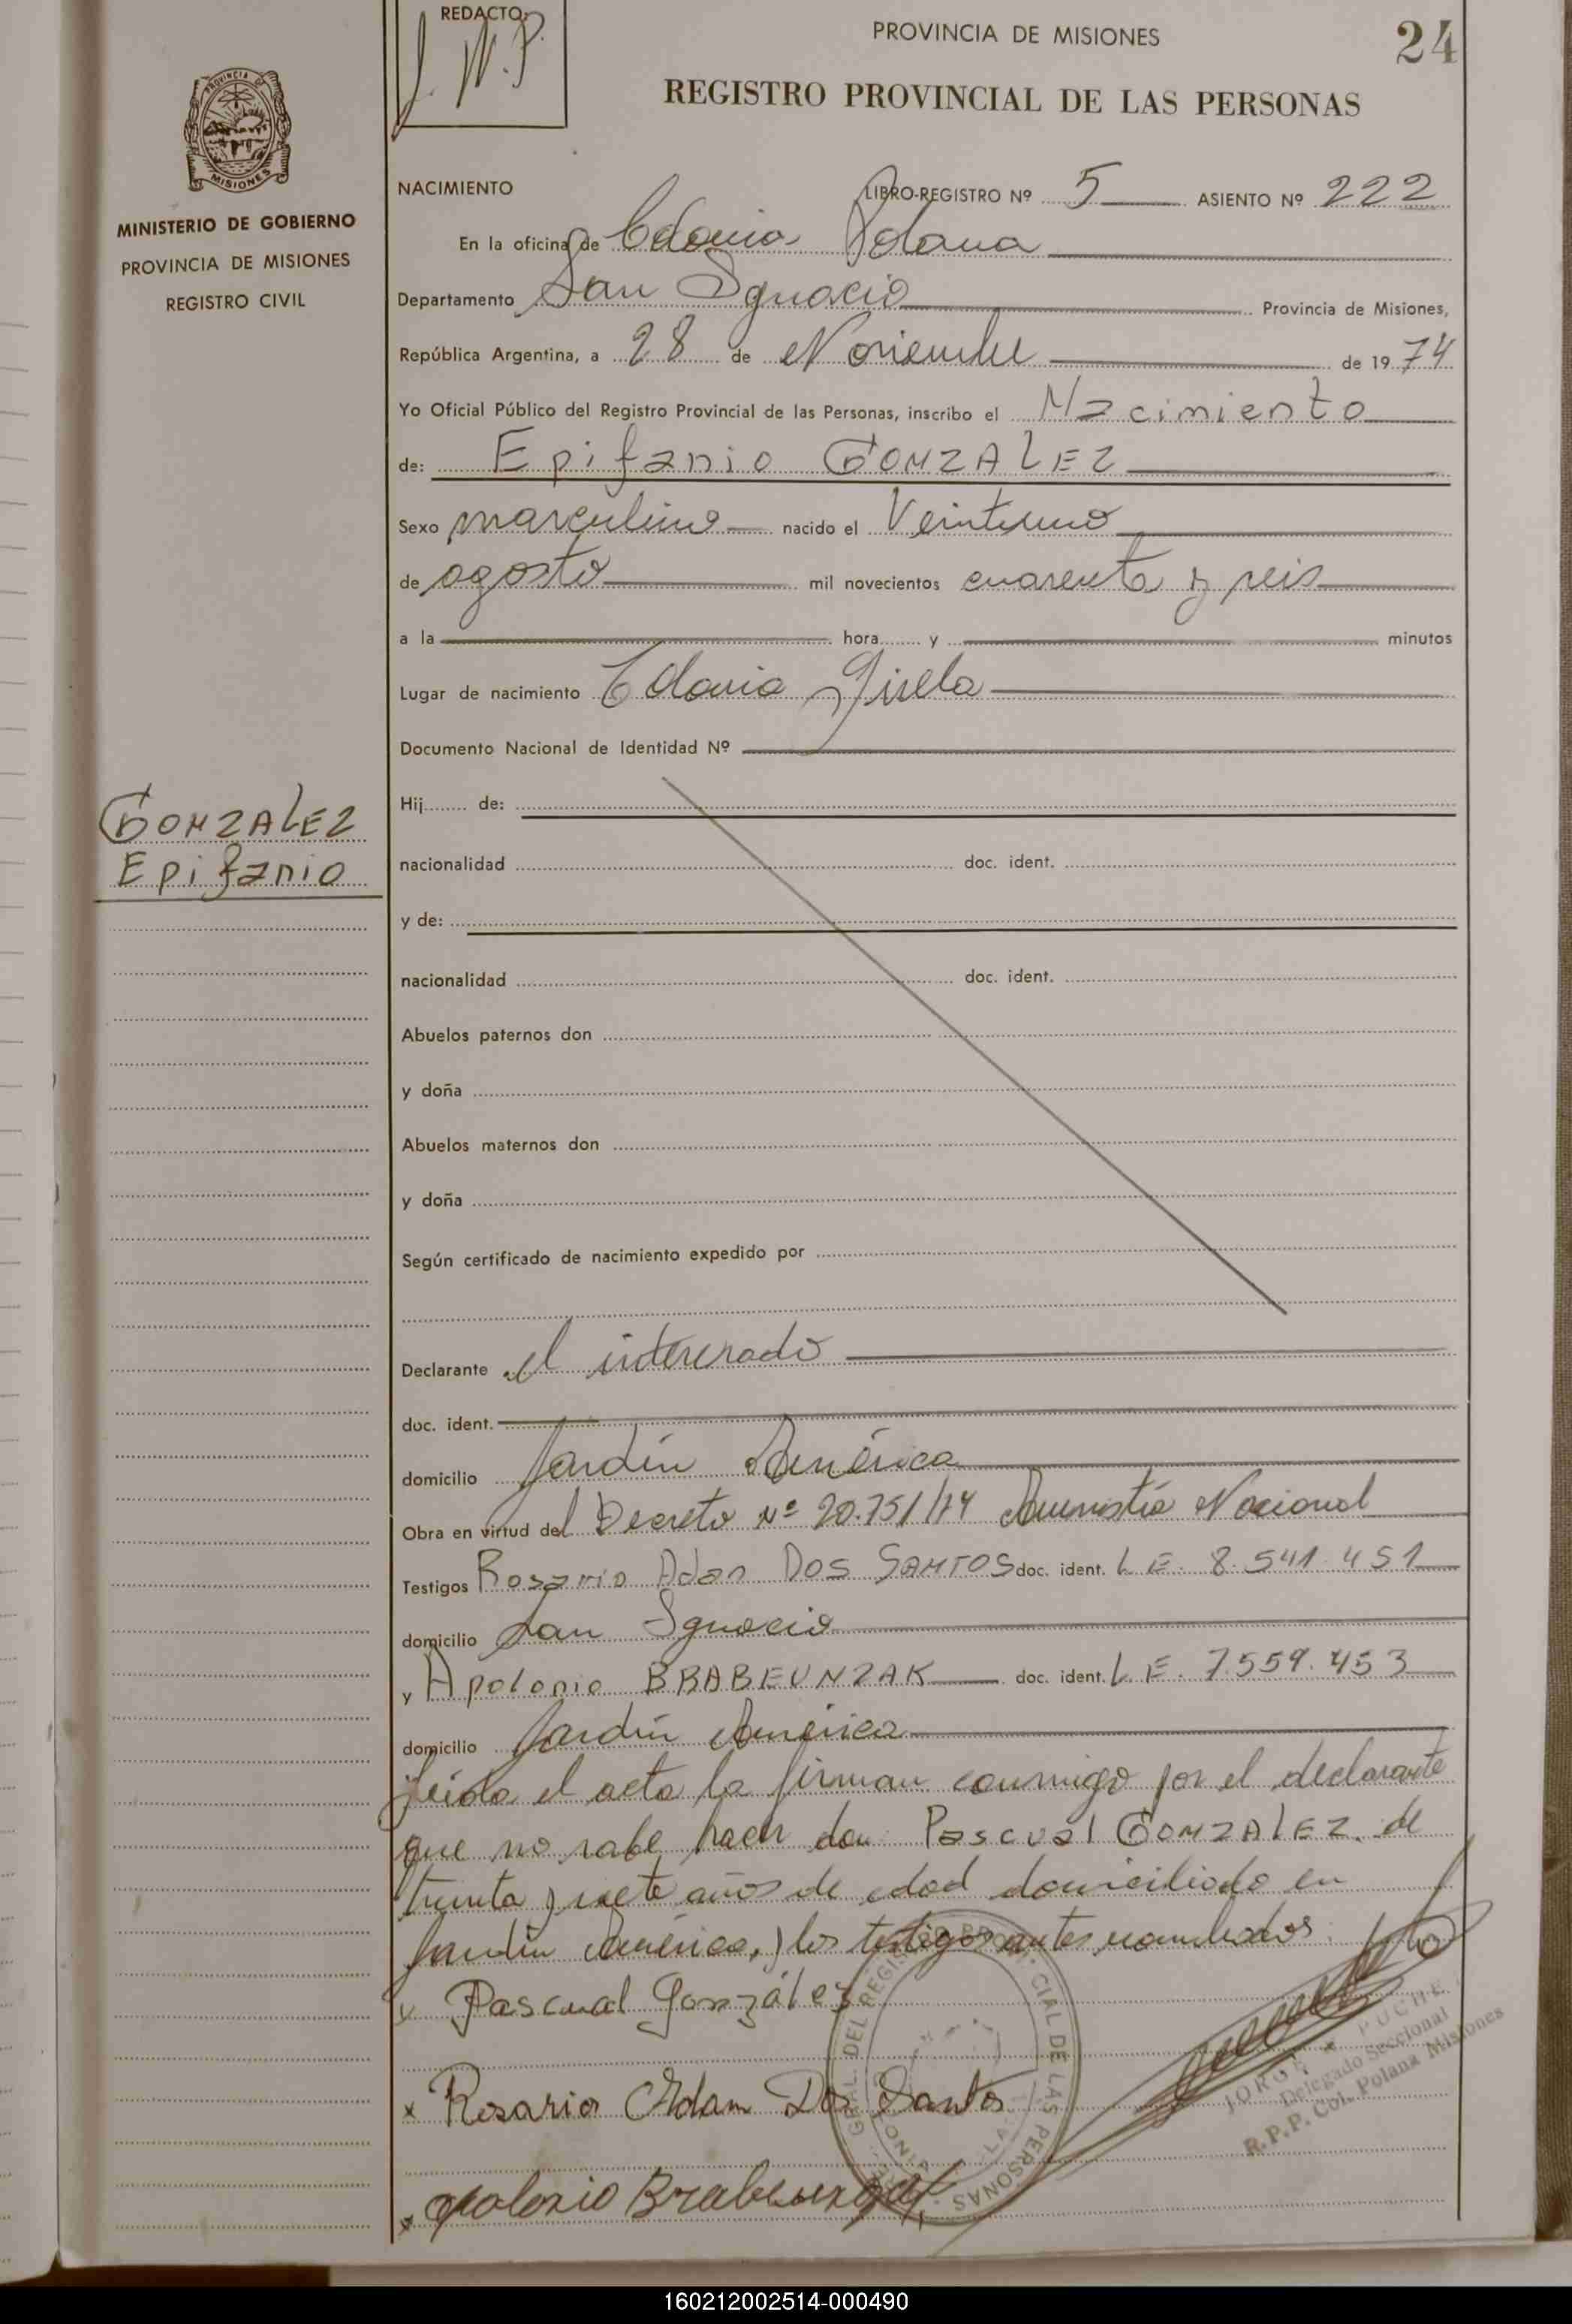 REDACTO:
J. W. P.
PROVINCIA DE MISIONES
24
REGISTRO PROVINCIAL DE LAS PERSONAS
PROVINCIA DE
MISIONES
MINISTERIO DE GOBIERNO
PROVINCIA DE MISIONES
REGISTRO CIVIL
NACIMIENTO LIBRO-REGISTRO Nº 5 ASIENTO Nº 222
En la oficina de Colonia Polana
Departamento San Ignacio Provincia de Misiones,
República Argentina, a 28 de Noviembre de 1974
Yo Oficial Público del Registro Provincial de las Personas, inscribo el Nacimiento
de: Epifanio GONZALEZ
Sexo masculino nacido el Veintiuno
de agosto mil novecientos cuarenta y seis
a la hora y minutos
Lugar de nacimiento Colonia Gisela
Documento Nacional de Identidad Nº
GONZALEZ
Epifanio
Hij de:
nacionalidad doc. ident.
y de:
nacionalidad doc. ident.
Abuelos paternos don
y doña
Abuelos maternos don
y doña
Según certificado de nacimiento expedido por
Declarante el interesado
doc. ident.
domicilio Jardín América
Obra en virtud del Decreto Nº 20.751/74 Amnistía Nacional
Testigos Rosario Adan DOS SANTOS doc. ident. L E. 8.541.451
domicilio San Ignacio
y Apolonio BRABEUNZAK doc. ident. L E. 7.559.453
domicilio Jardín América
Leída el acta la firman conmigo por el declarante
que no sabe hacer don Pascual GONZALEZ de
treinta y siete años de edad domiciliado en
Jardín América, y los testigos antes nombrados.
x Pascual González
x Rosario Adam Dos Santos
x Apolonio Brabeunzak
JORGE W PUCHE
Delegado Seccional
R.P.P. Col. Polana Misiones
160212002514-000490